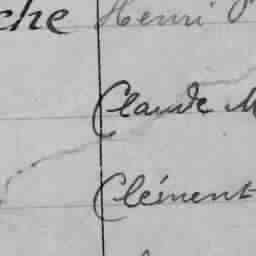 che Henri
Claude M
Clément